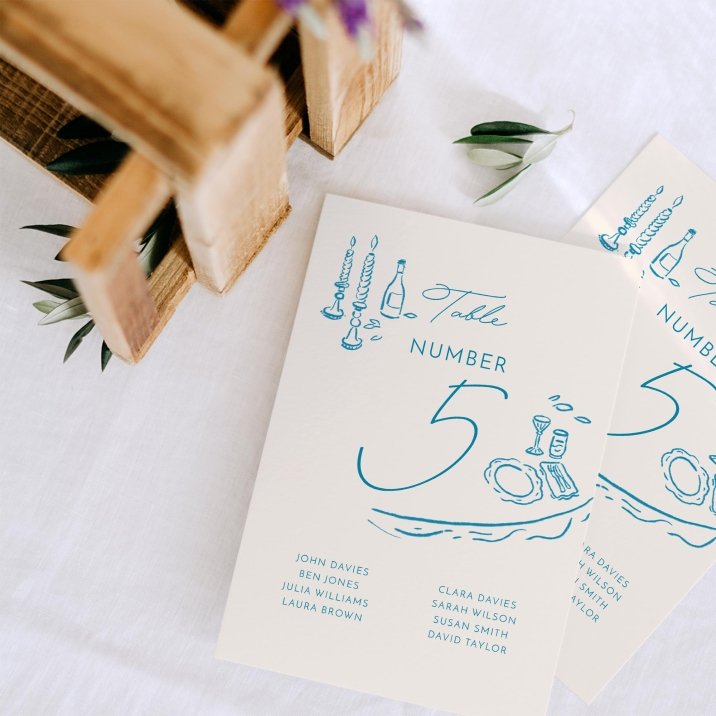 Table
NUMBER
5
JOHN DAVIES
BEN JONES
JULIA WILLIAMS
LAURA BROWN
CLARA DAVIES
SARAH WILSON
SUSAN SMITH
DAVID TAYLOR
NUMBE
5
ARA DAVIES
H WILSON
N SMITH
TAYLOR